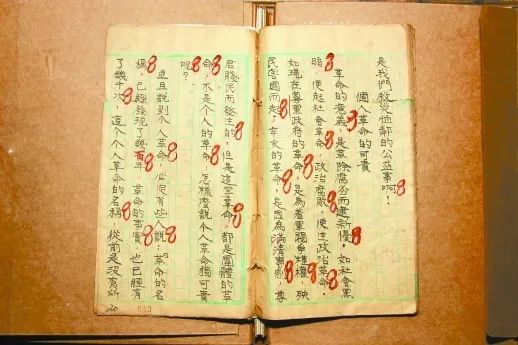 是我們救災恤鄰的公益事啊!
個人革命的可貴
革命的意義,是革除腐舊而建新優。如社會黑
暗,便起社會革命。政治腐敗,便生政治革命。
如現在粵軍政府的革命,是為着軍閥爭權,殃
民害國而走,辛亥的革命,是因為滿清專制,尊
君賤民而發生的,但是這些革命,都是團體的革
命,不是个人的革命,怎樣說个人革命獨可貴
呢?
並且說到个人革命,必定有些人說:革命的名
稱,已經發現了幾百年,革命的事實,也已經有
了幾千次,這个个人革命的名稱,從前是沒有所
20